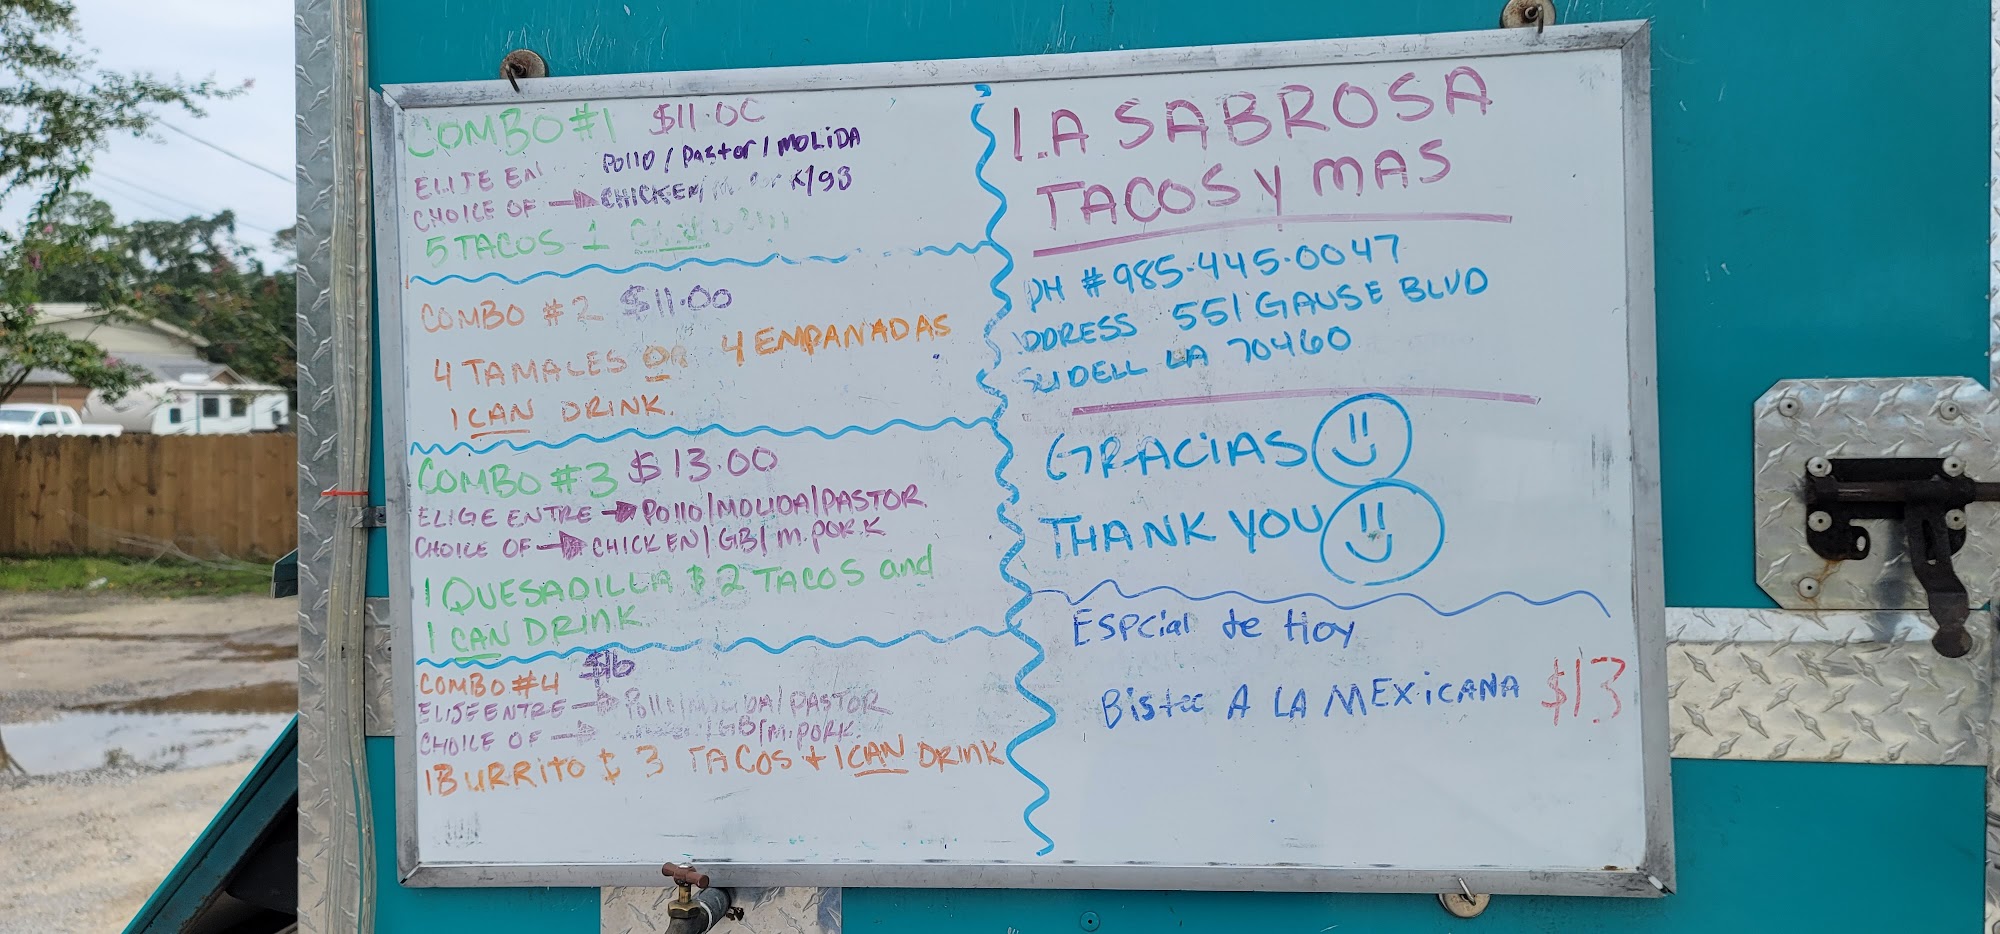 COMBO #1 $11.00
ELIJE EN Pollo / Pastor / MOLIDA
CHOICE OF CHICKEN/
5 TACOS 1
COMBO #2 $11.00
4 TAMALES OR 4 EMPANADAS
1 CAN DRINK.
COMBO #3 $13.00
ELIGE ENTRE Pollo/MOLIDA/PASTOR
CHOICE OF CHICKEN/GB/M.PORK
1 QUESADILLA $ 2 TACOS and
1 CAN DRINK
COMBO #4 $16
ELIJE ENTRE Pollo/MOLIDA/PASTOR
CHOICE OF /GB/M.PORK.
1 BURRITO $ 3 TACOS + 1 CAN DRINK
LA SABROSA
TACOS Y MAS
PH # 985-445-0047
DDRESS 551 GAUSE BLVD
SLIDELL LA 70460
GRACIAS
THANK YOU
ESPCial de Hoy
Bistec A LA MEXICANA $13